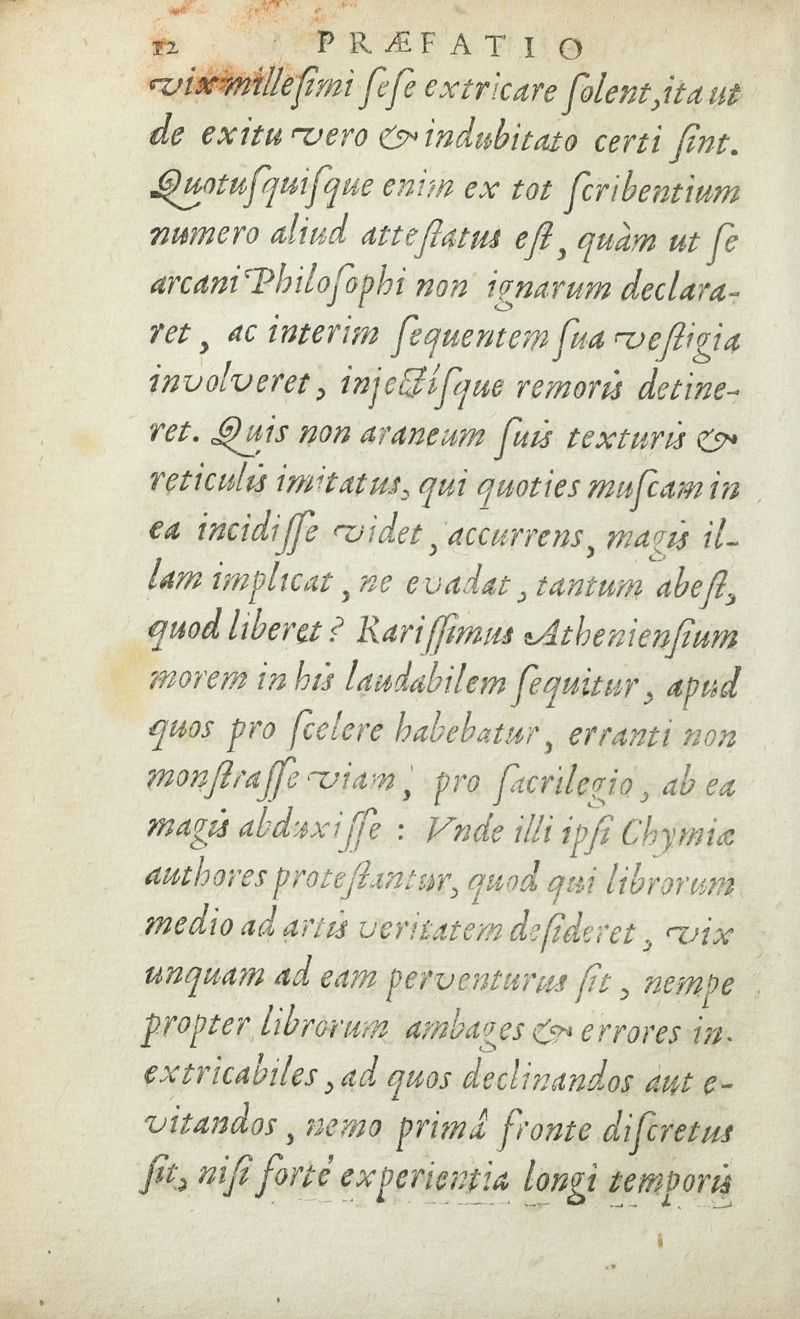 12 PRÆFATIO
vix millesimi sese extricare solent, ita ut
de exitu vero & indubitato certi sint.
Quotusquisque enim ex tot scribentium
numero aliud attestatus est, quàm ut se
arcani Philosophi non ignarum declara-
ret, ac interim sequentem sua vestigia
involveret, injectísque remoris detine-
ret. Quis non araneum suis texturis &
reticulis imitatus, qui quoties muscam in
ea incidisse videt, accurrens, magis il-
lam implicat, ne evadat, tantum abest,
quod liberet? Rarissimus Atheniensium
morem in his laudabilem sequitur, apud
quos pro scelere habebatur, erranti non
monstrasse viam, pro sacrilegio, ab ea
magis abduxisse: Vnde illi ipsi Chymiæ
authores protestantur, quod qui librorum
medio ad artis veritatem desideret, vix
unquam ad eam perventurus sit, nempe
propter librorum ambages & errores in-
extricabiles, ad quos declinandos aut e-
vitandos, nemo primâ fronte discretus
sit, nisi fortè experientia longi temporis